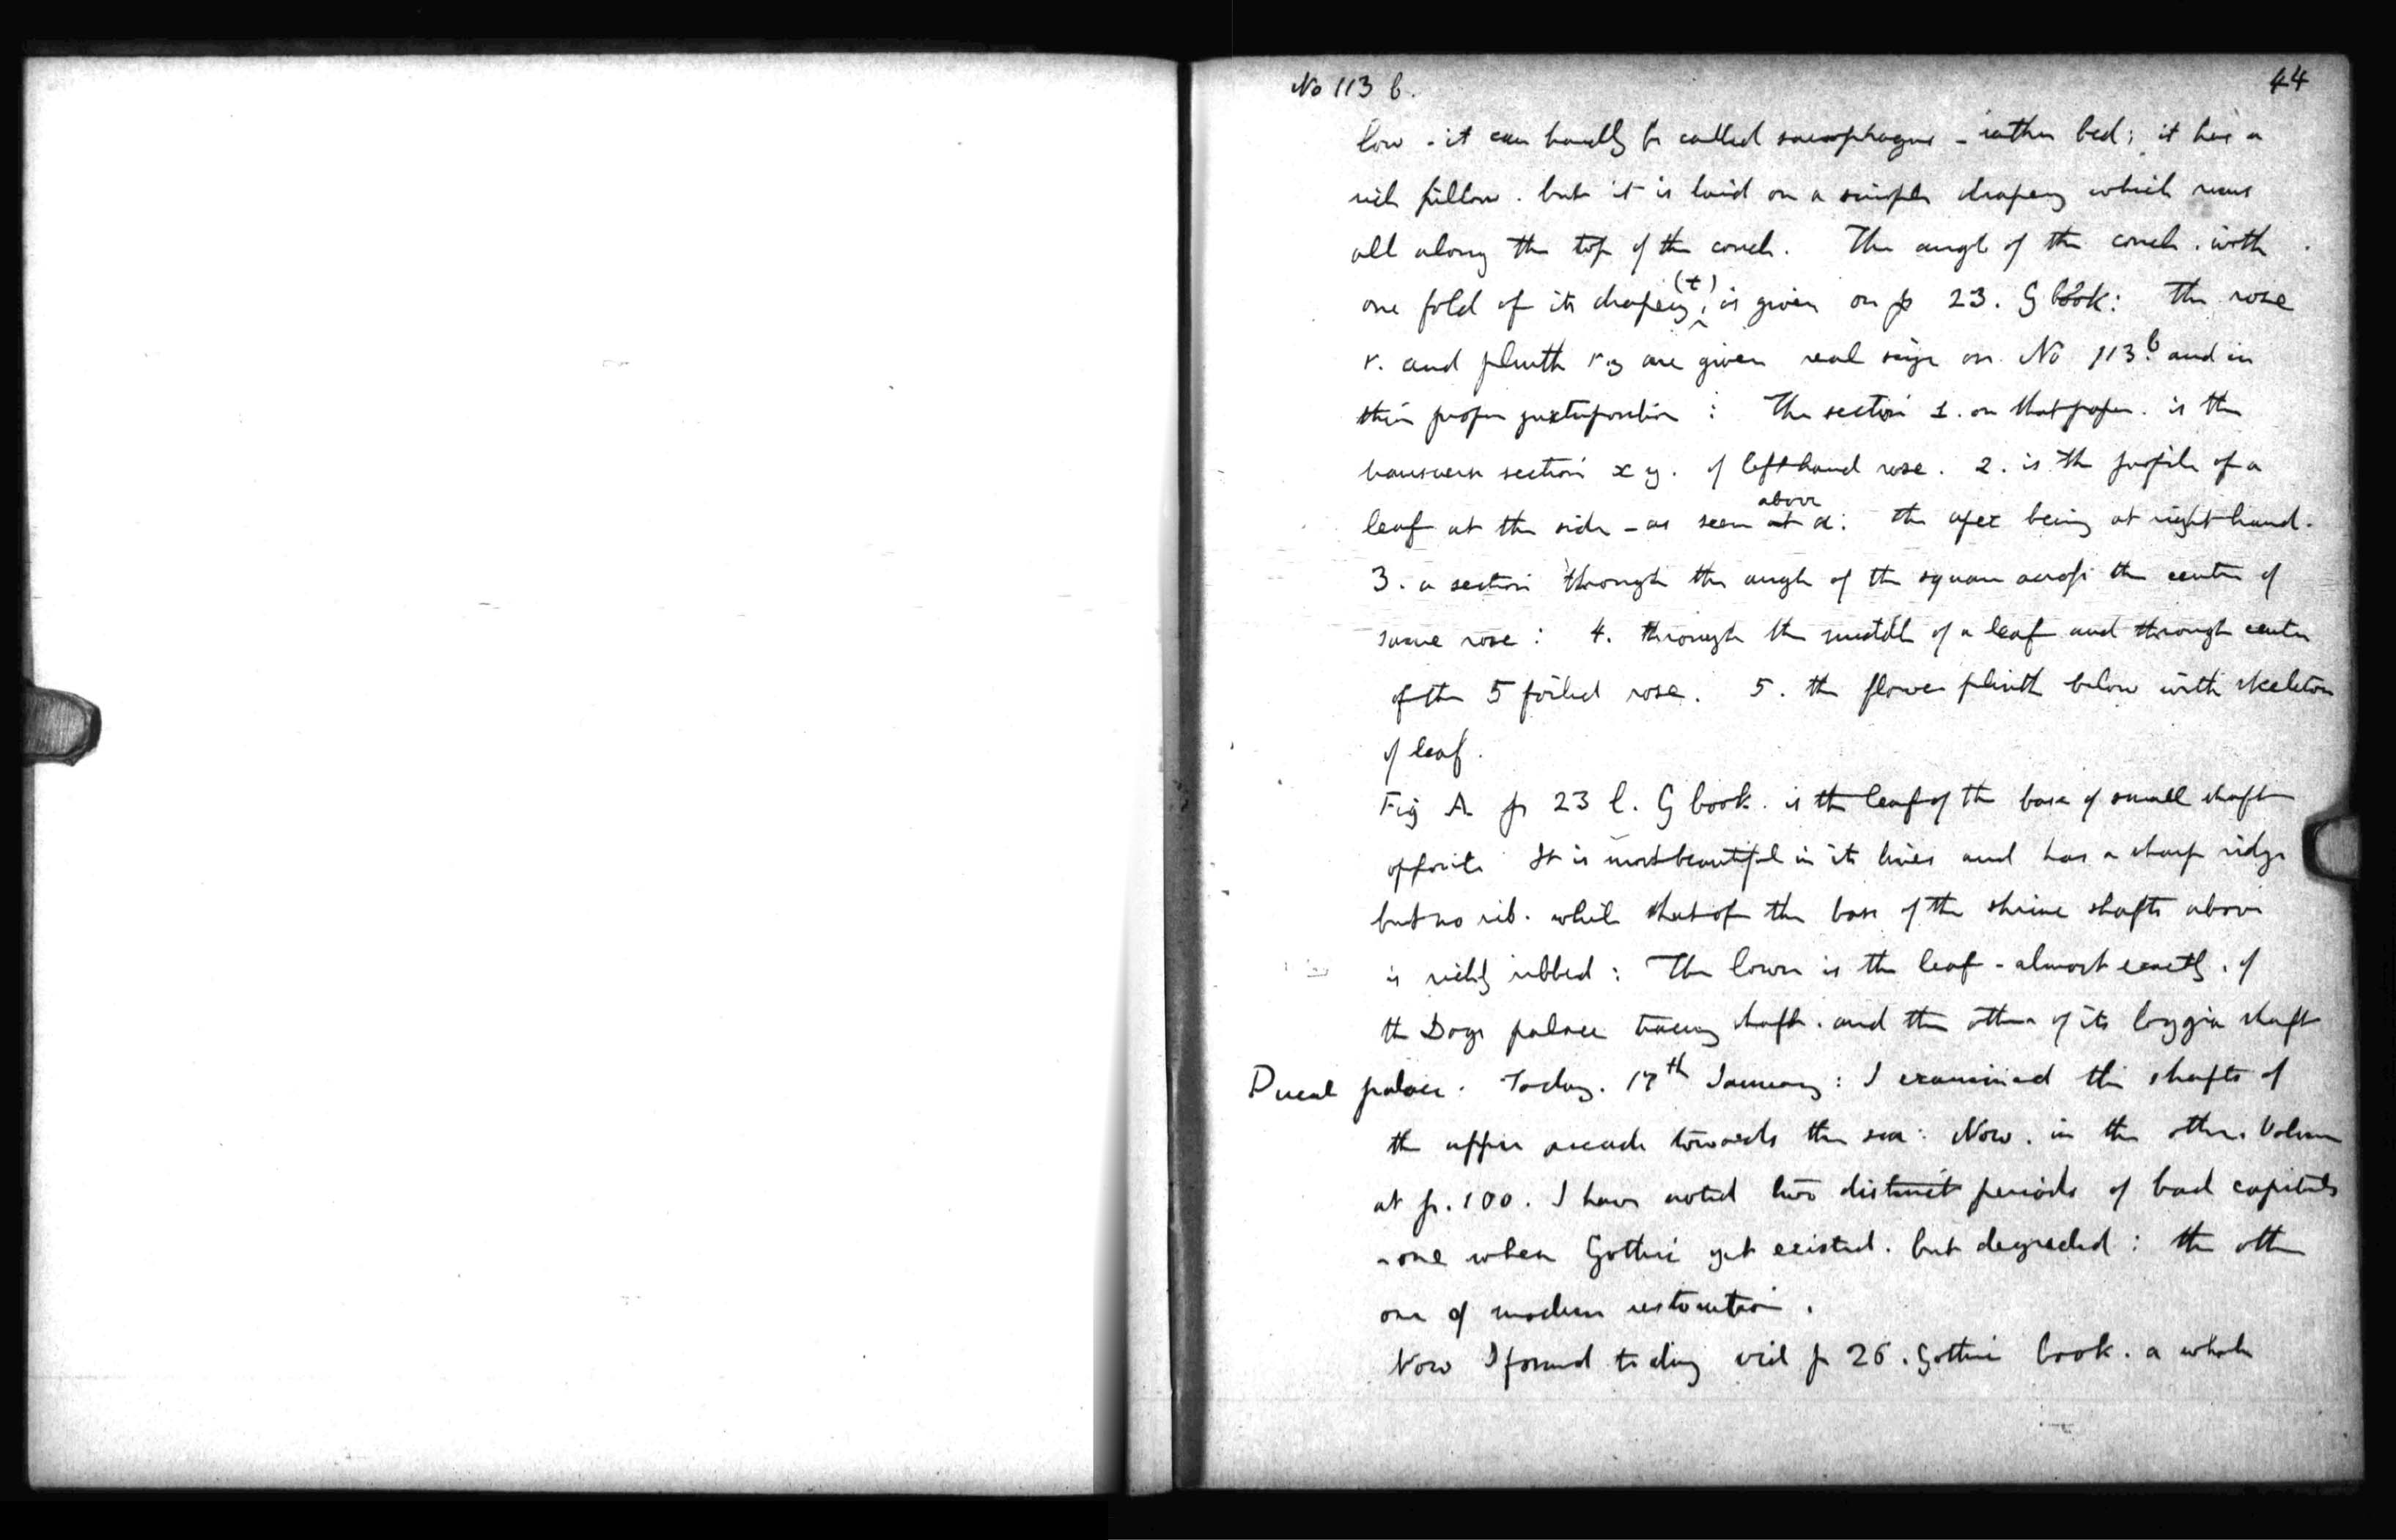 No 113 b.
44
low - it can hardly be called sarcophagus - rather bed; it has a
rich pillow. but it is laid on a simple drapery which runs
all along the top of the couch. The angle of the couch. with
one fold of its drapery, (t) is given on p 23. G book: The rose
r. and plinth r.y are given real size on No 113.b and in
their proper juxtaposition : The section 1. on that paper. is the
transverse section x y. of left hand rose. 2. is the profile of a
leaf at the side - as seen above at a: the apex being at right hand.
3. a section through the angle of the square across the centre of
same rose : 4. through the middle of a leaf and through centre
of the 5 foiled rose. 5. the flower plinth below with skeleton
of leaf.
Fig A p 23 l. G book. is the leaf of the base of small shaft
opposite It is most beautiful in its lines and has a sharp ridge
but no rib. while that of the base of the shrine shafts above
is richly ribbed : The lower is the leaf - almost exactly. of
the Doges palace tracery shaft. and the other of its loggia shaft
Ducal palace. Today. 17th January : I examined the shafts of
the upper arcade towards the sea : Now. in the other Volume
at p. 100. I have noted two distinct periods of bad capitals
- one when Gothic yet existed. but degraded : the other
one of modern restoration.
Now I found to day vid p 26. Gothic book. a whole